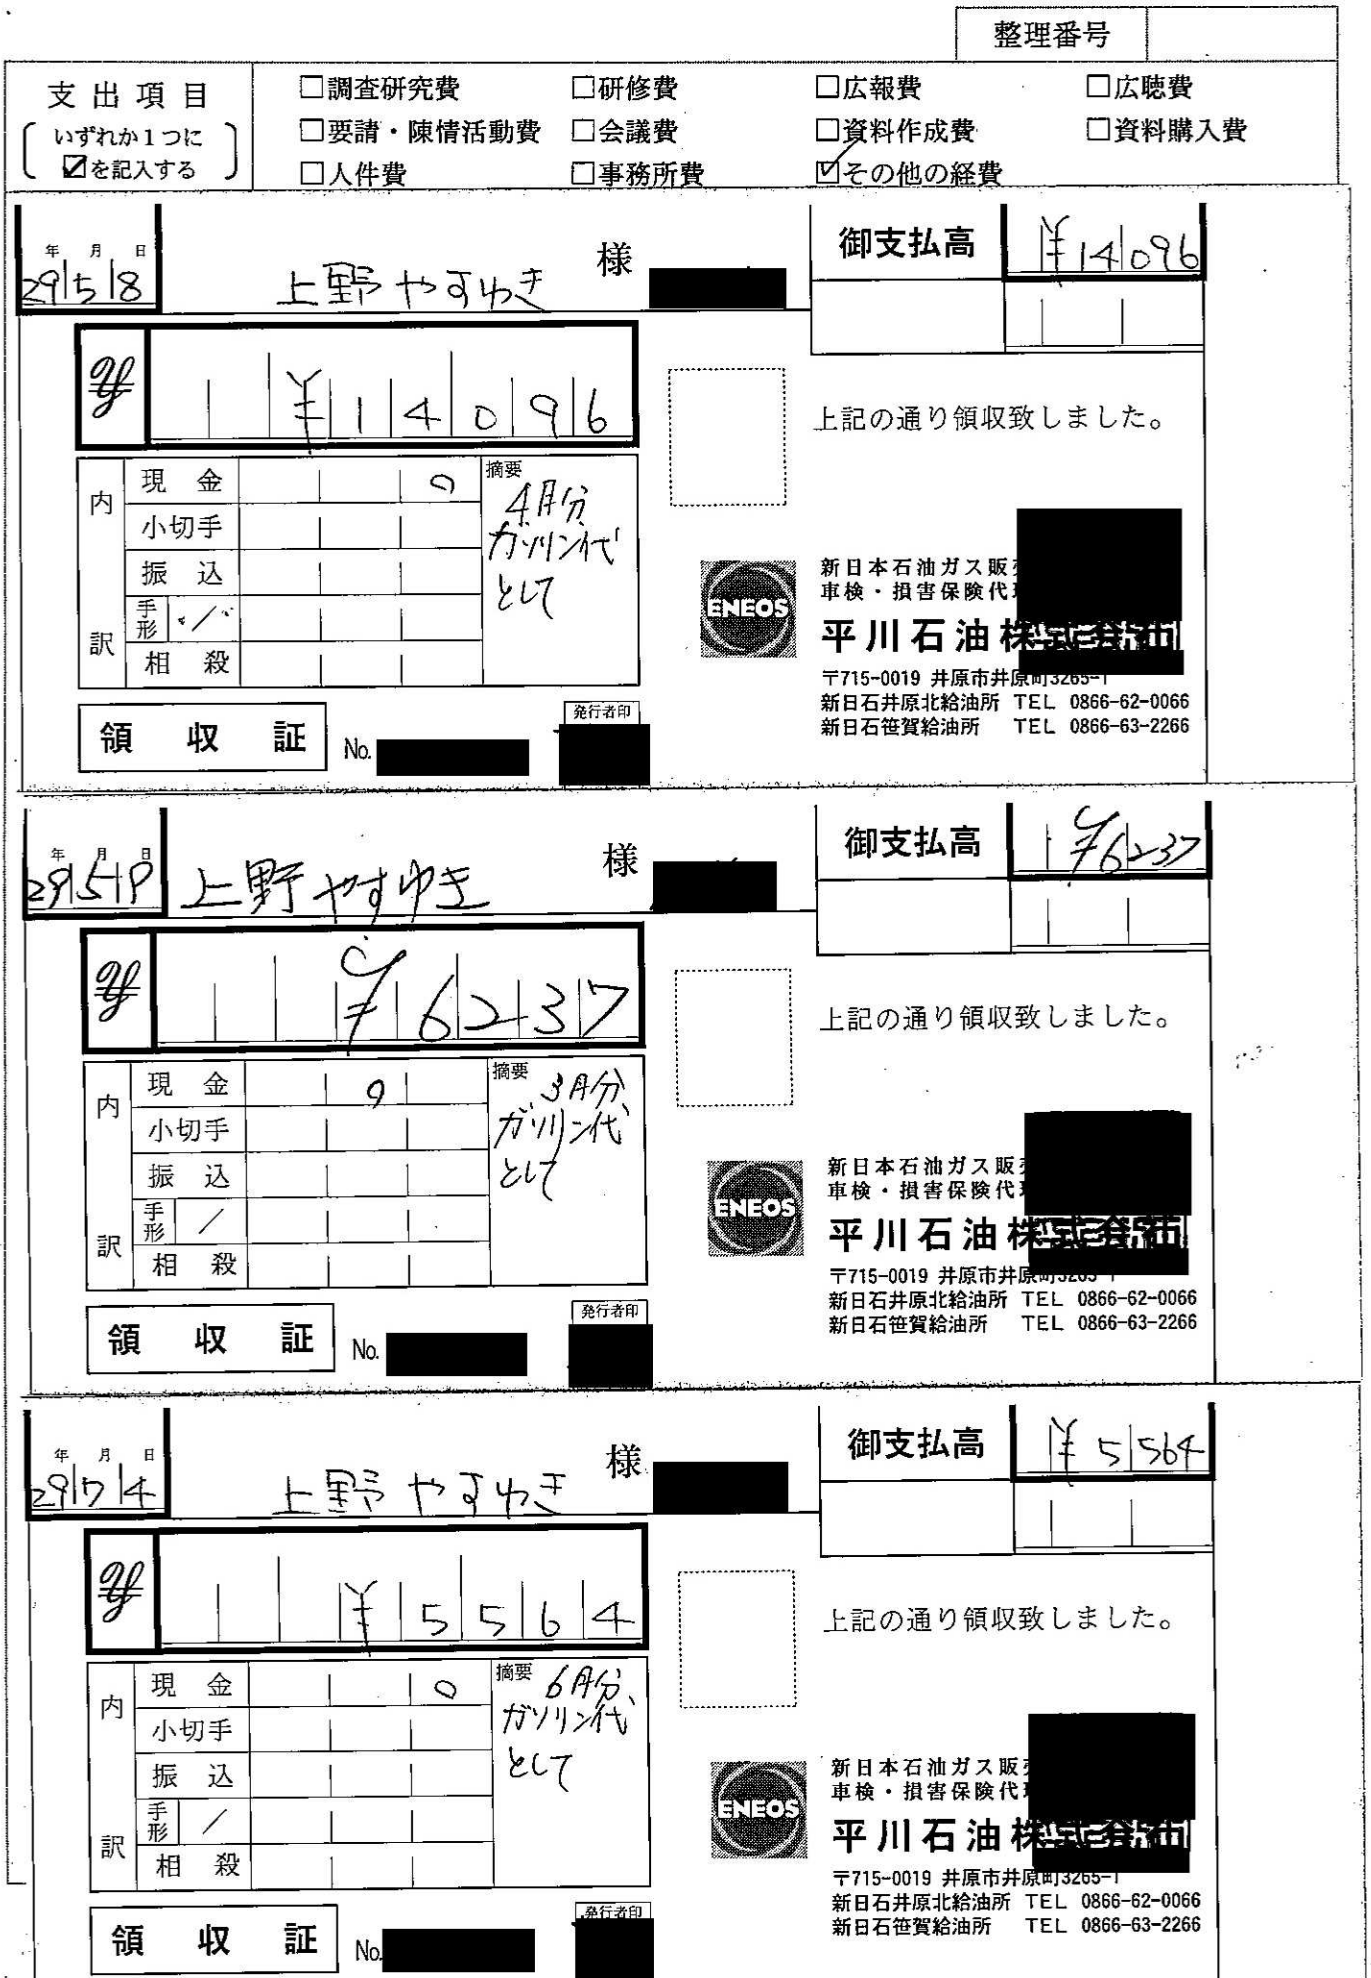 整理番号
支出項目
いずれか1つに
☑を記入する
□調査研究費 □研修費 □広報費 □広聴費
□要請・陳情活動費 □会議費 □資料作成費 □資料購入費
□人件費 □事務所費 ☑その他の経費
年 月 日
29 5 8
上野やすゆき 様
御支払高 ¥14096
¥ ¥14096
上記の通り領収致しました。
内訳
現金 0
小切手
振込
手形 /
相殺
摘要
4月分
ガソリン代
として
ENEOS
新日本石油ガス販
車検・損害保険代
平川石油株式会社
〒715-0019 井原市井原町3265-1
新日石井原北給油所 TEL 0866-62-0066
新日石笹賀給油所 TEL 0866-63-2266
領収証 No.
発行者印
年 月 日
29 5
上野やすゆき 様
御支払高 ¥6237
¥ ¥6237
上記の通り領収致しました。
内訳
現金 0
小切手
振込
手形 /
相殺
摘要
3月分
ガソリン代
として
ENEOS
新日本石油ガス販
車検・損害保険代
平川石油株式会社
〒715-0019 井原市井原町3265-1
新日石井原北給油所 TEL 0866-62-0066
新日石笹賀給油所 TEL 0866-63-2266
領収証 No.
発行者印
年 月 日
29 7 4
上野やすゆき 様
御支払高 ¥5564
¥ ¥5564
上記の通り領収致しました。
内訳
現金 0
小切手
振込
手形 /
相殺
摘要
6月分
ガソリン代
として
ENEOS
新日本石油ガス販
車検・損害保険代
平川石油株式会社
〒715-0019 井原市井原町3265-1
新日石井原北給油所 TEL 0866-62-0066
新日石笹賀給油所 TEL 0866-63-2266
領収証 No.
発行者印